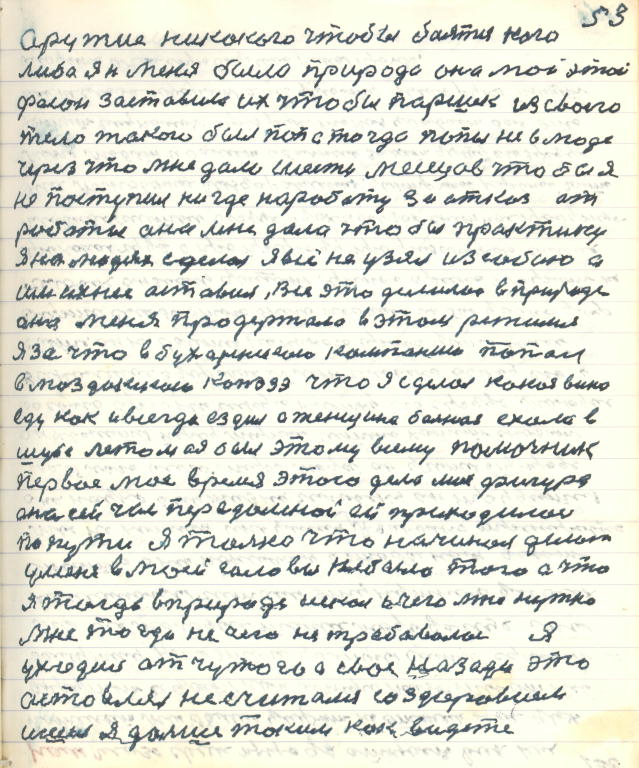 53
Оружие никокого чтобы боятся кого
либа я н меня было природа она мой этой
фасон заставила их чтобы паршек из своего
тело такого был поп а тогда попы не в моде
через что мне дали шесть месецов что бы я
не поступил нигде наработу за отказ от
работы она мне дала чтобы практику
я на людях сделал я всё не узял из собою а
им ихнее оставил, Все это делилось в природе
она меня продержала в этом режиме
я за что в бухарнискою компанию попал
в моздокском што я сделал какая вина
еду как и всегда ездил а женщина больная ехала в
шубе летом а я был этому всему помочник
первое мое время этого дела моя фигура
она сей час передомной ей приходилось
по пути Я только что начинал делать
у меня в моей головы небыло того а что
я тогда в природе искал а чего мне нужно
мне тогда не чего не требовалось Я
уходил от чужого а свое назади это
оставлял несчитался со здоровьем
ишел я дальше таким как видете